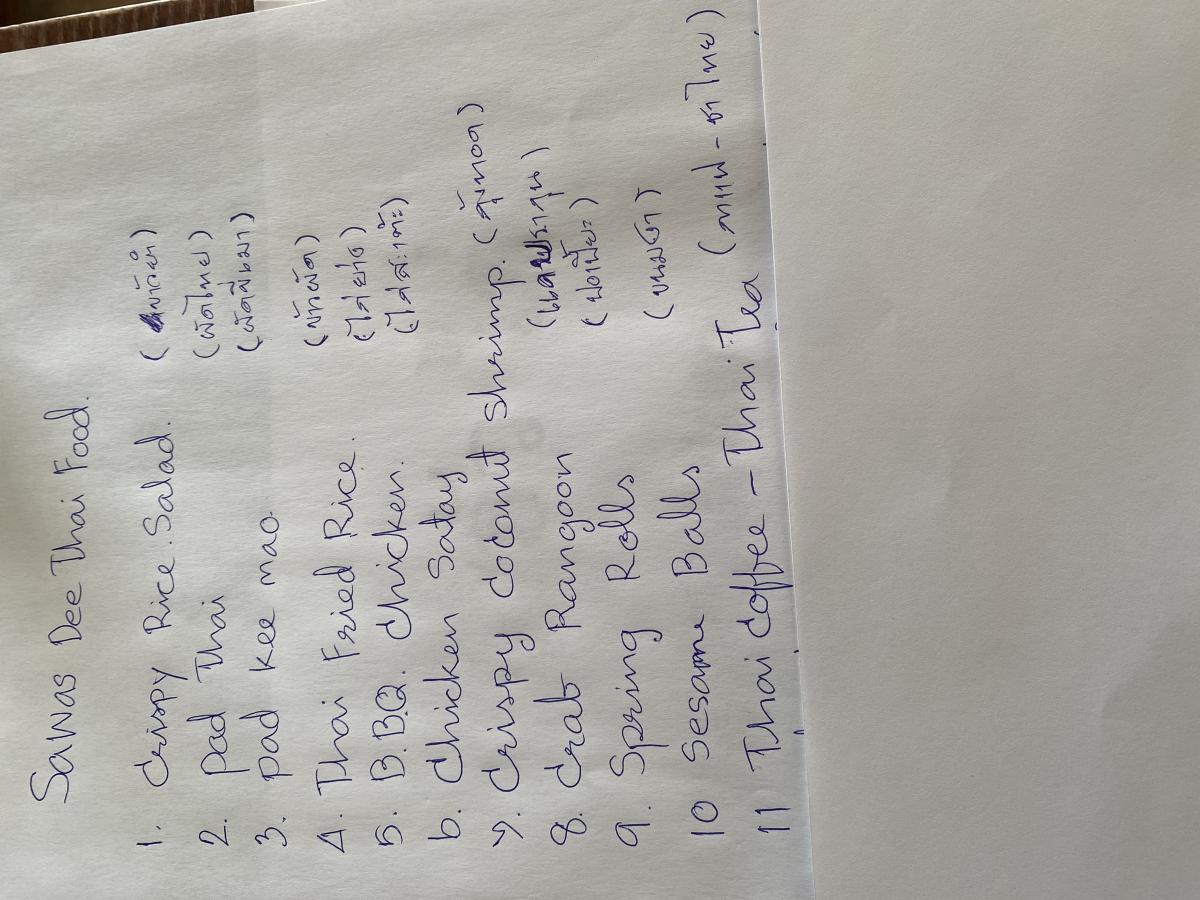 Sawas Dee Thai Food.
1. Crispy Rice Salad. (ยำข้าว)
2. Pad Thai (ผัดไทย)
3. pad kee mao. (ผัดขี้เมา)
4. Thai Fried Rice. (ข้าวผัด)
5. B.B.Q. Chicken. (ไก่ย่าง)
6. Chicken Satay (ไก่สะเต๊ะ)
7. Crispy Coconut Shrimp. (กุ้งทอด)
8. Crab Rangoon
9. Spring Rolls (ปอเปี๊ยะ)
10 Sesame Balls (ขนมงา)
11 Thai Coffee - Thai Tea (กาแฟ - ชาไทย)